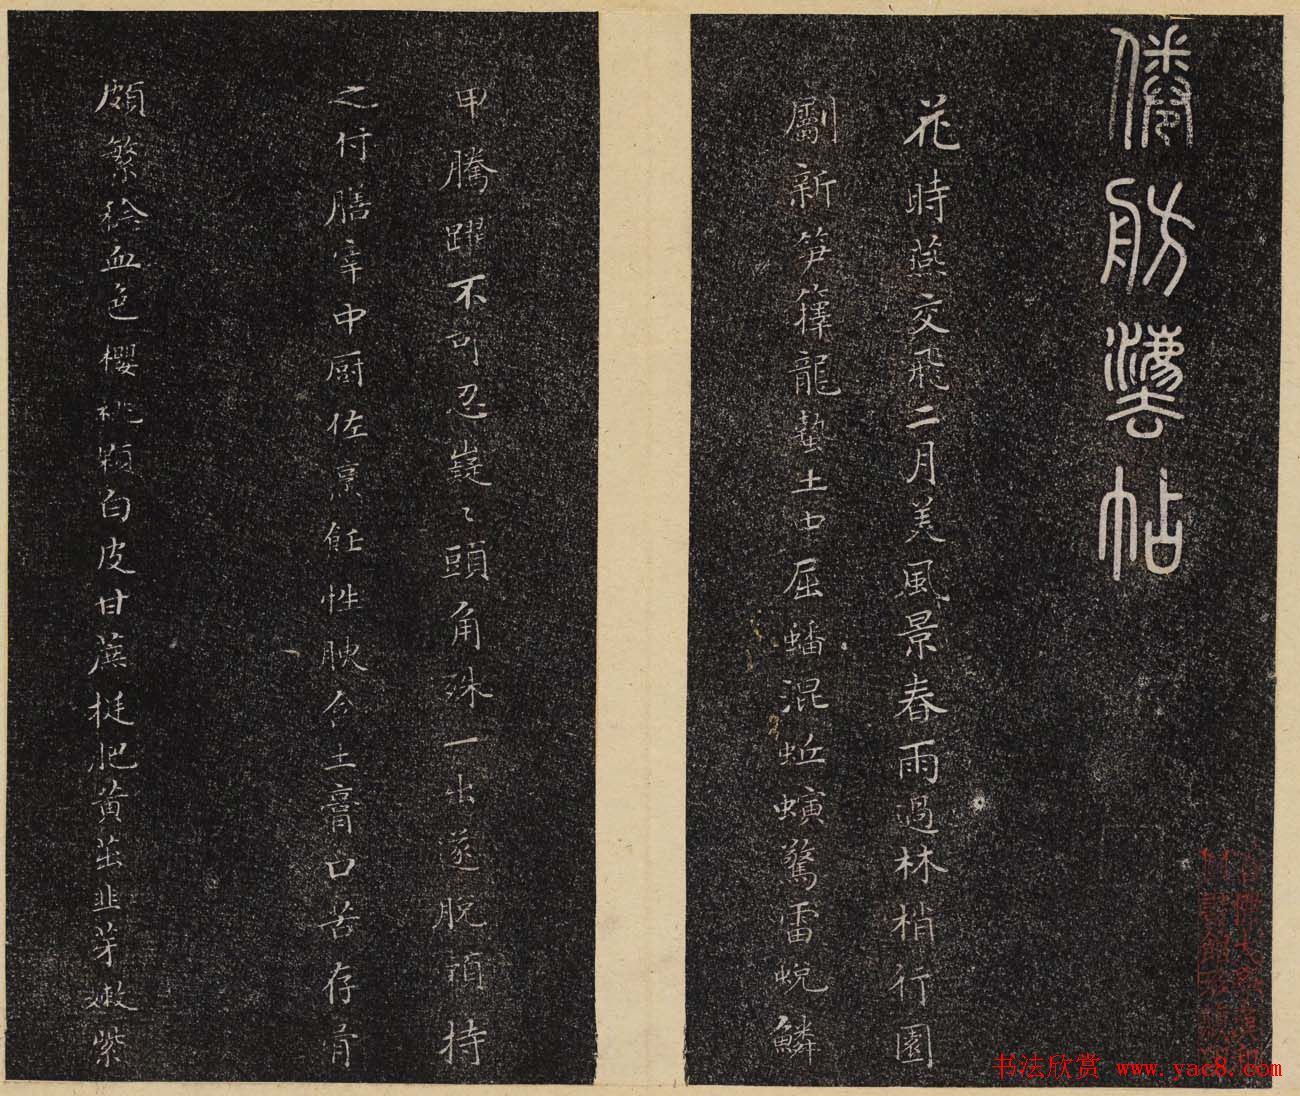 僊舫灋帖
花時燕交飛二月美風景春雨過林梢行園
劚新笋籜龍蟄土中屈蟠混蚯螾驚雷蛻鱗
甲騰躍不可忍嶷〻頭角殊一出遂脫頴持
之付膳宰中厨佐烹飪性腴含土膏口苦存骨
頗繁稔血色櫻桃顆白皮甘蔗挺肥黃茁韭芽嫩紫
书法欣赏 www.yac8.com